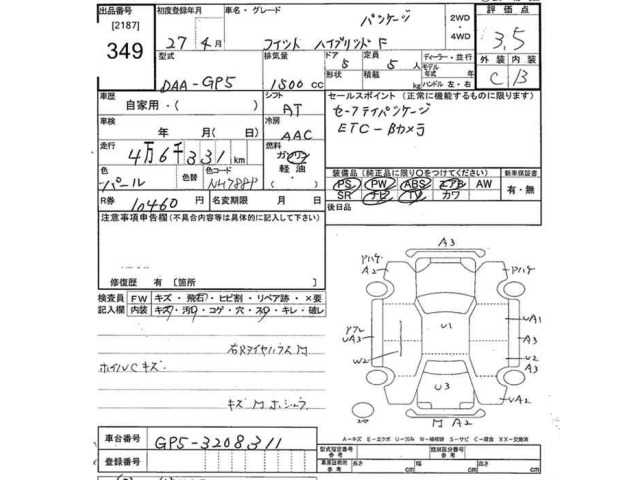 出品番号 初度登録年月 車名・グレード 評価点
[2187] パッケージ 2WD
349 27年4月 フィット ハイブリッド F ・4WD 3.5
型式 排気量 ドア 定員 ディーラー・並行 外装 内装
DAA-GP5 1500cc 5 5人 モデル年式 年 C B
形状 積載 kg ハンドル 左・右
車歴 シフト セールスポイント(正常に機能するものに限ります)
自家用・( ) AT セーフティパッケージ
車検 冷房 ETC-Bカメラ
年 月(日) AAC
走行 燃料
4万6千331km ガソリン
色 色替 色コード 軽油・ 装備品(純正品に限り○をつけてください) 新車保証書
パール NH788P PS PW ABS エアB AW 有・無
SR ナビ TV カワ
R券 10460円 名変期限 月 日 後日品
注意事項申告欄(不具合内容等は具体的に記入して下さい)
A3
アハゲ A2 アハゲ
修復歴 有 [箇所 ]
検査員 FW キズ・飛石・ヒビ割・リペア跡・×要
記入欄 内装 キズ・汚・コゲ・穴・スレ・キレ・破レ
U1 UA1
UA3 A3
W2 U2
A3
ホイルCキズ
U3
UA2
M A2
A-キズ E-エクボ U-凹み W-補修跡 S-サビ C-腐食 XX-交換済
車台番号 GP5-3208311
型式指定番号 類別区分番号
登録番号 車庫証明用参考 長さ cm 幅 cm 高さ cm